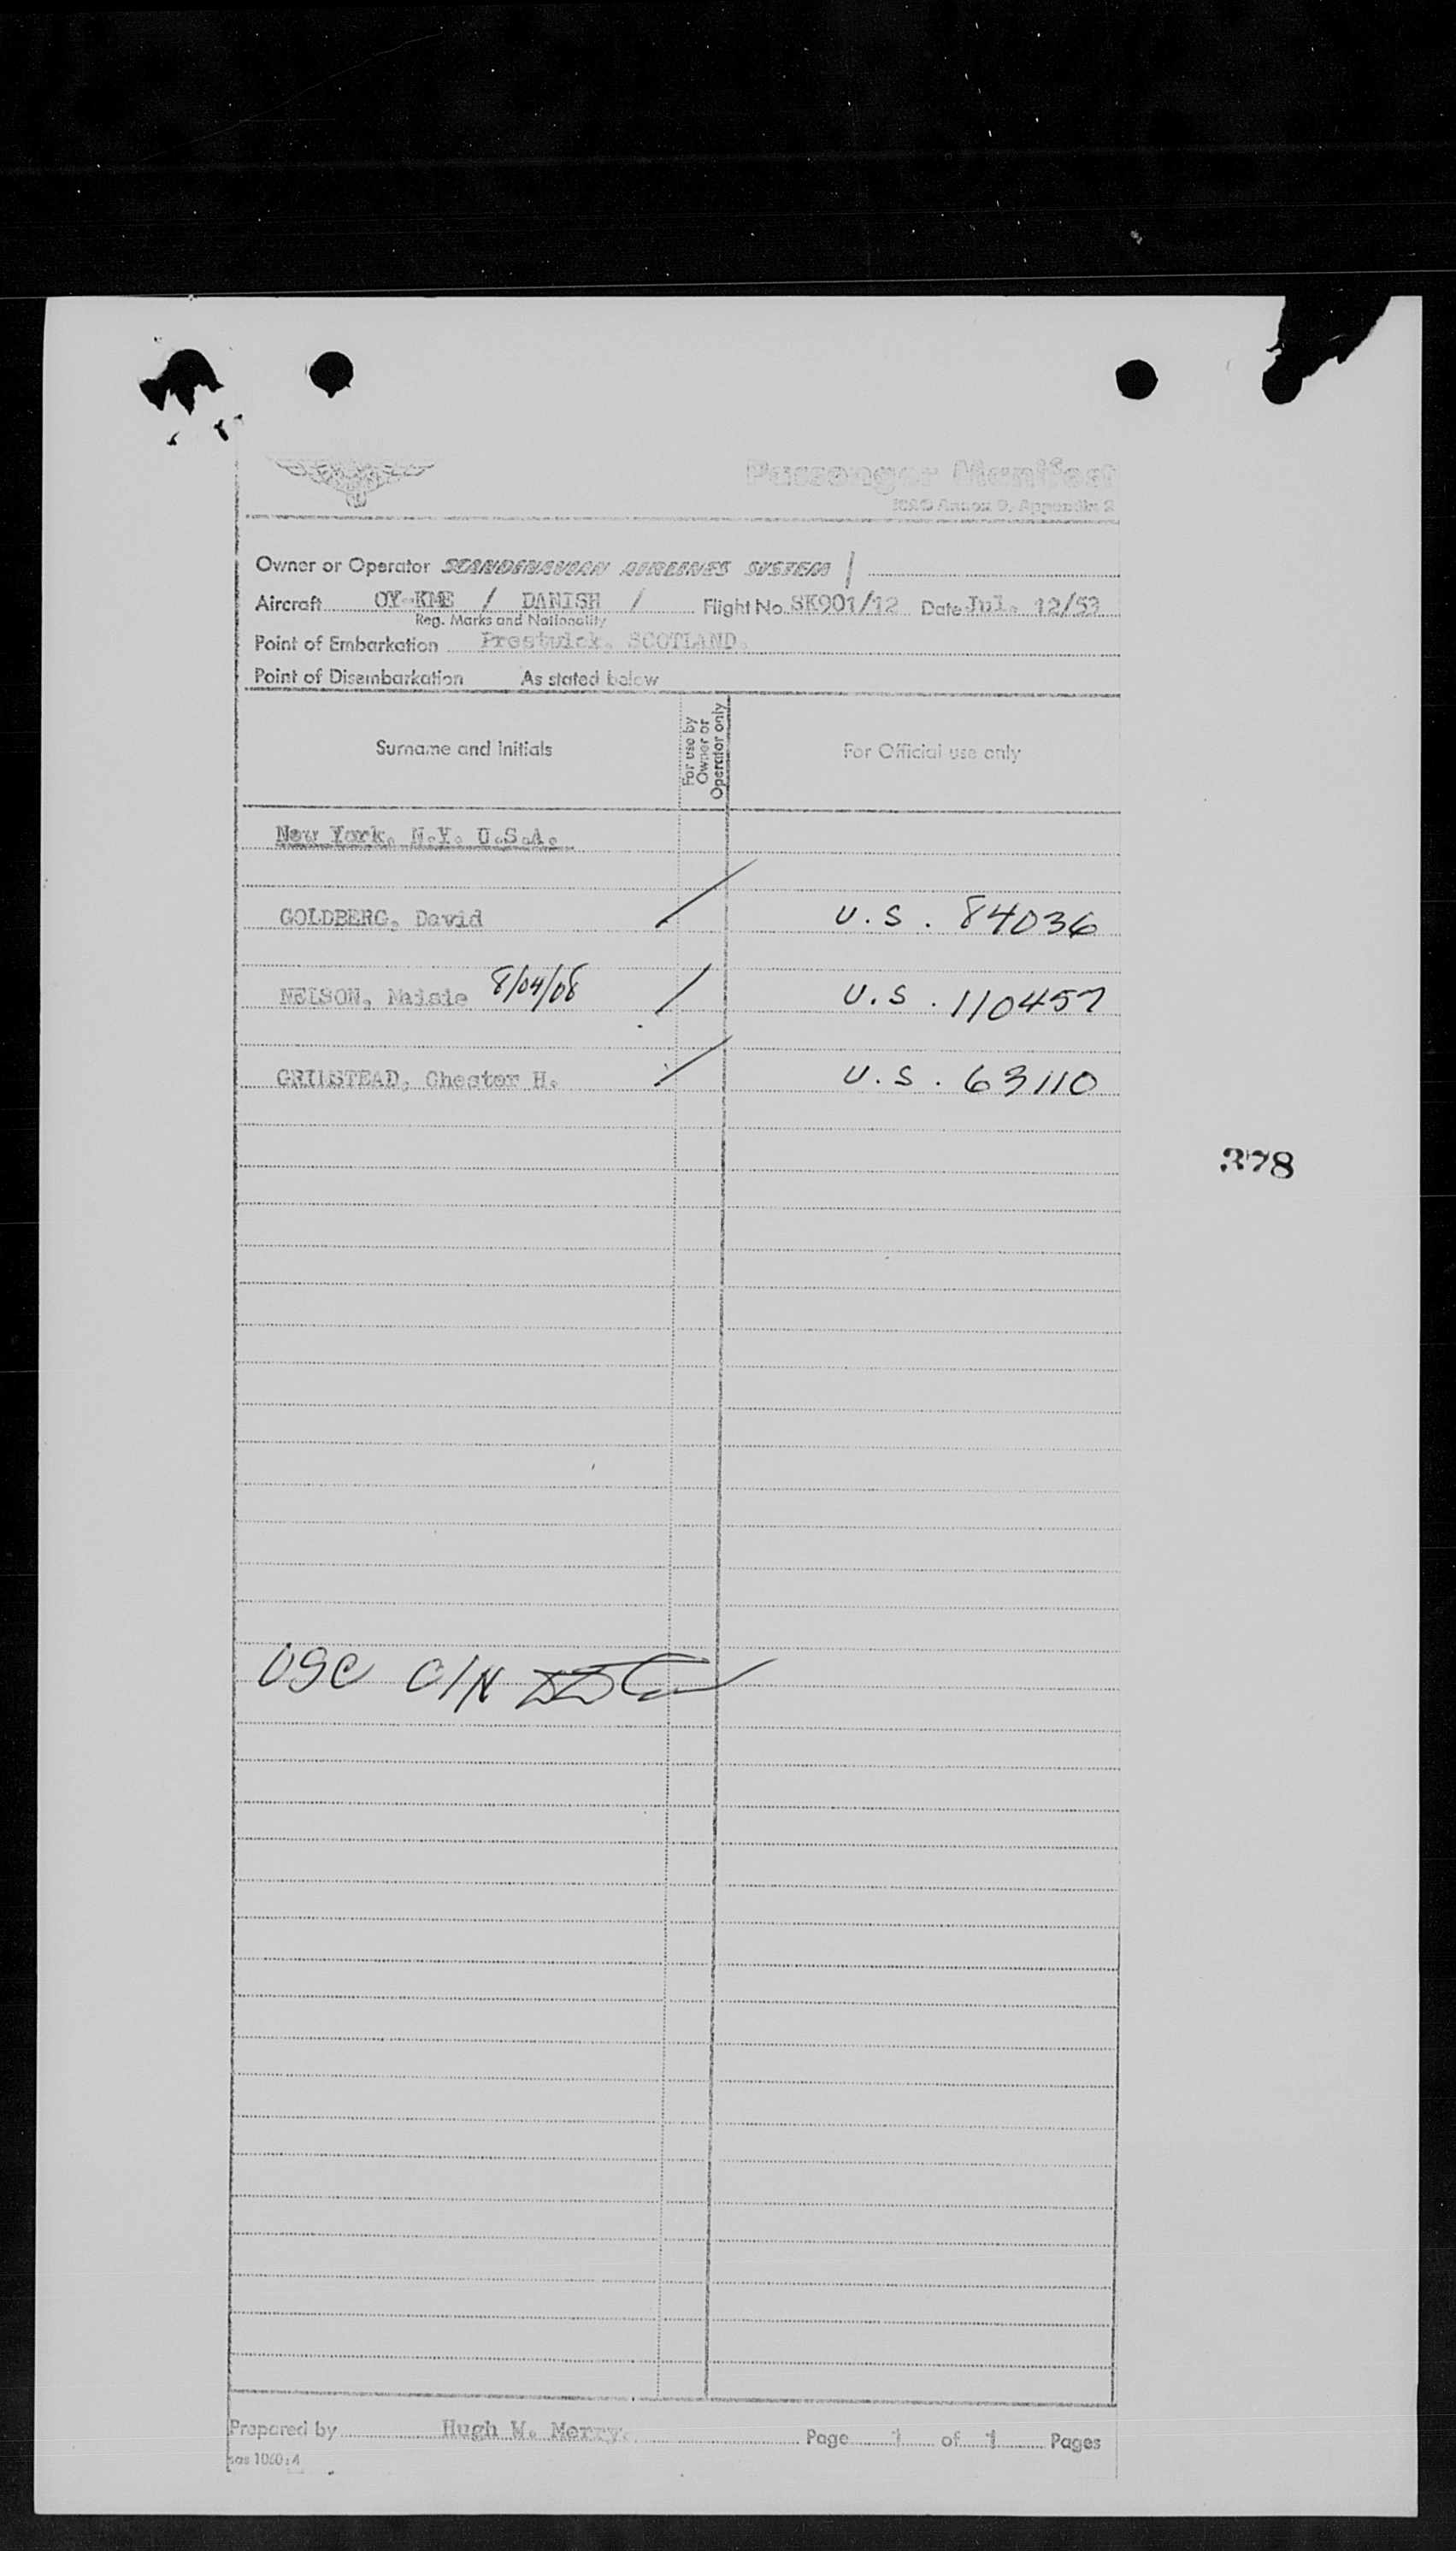 Passenger Manifest
ICAO Annex 9, Appendix 2
Owner or Operator SCANDINAVIAN AIRLINES SYSTEM /
Aircraft OY-KME / DANISH / Flight No. SK901/12 Date Jul. 12/53
Reg. Marks and Nationality
Point of Embarkation Prestwick, SCOTLAND.
Point of Disembarkation As stated below
Surname and initials For use by Owner or Operator only For Official use only
New York, N.Y. U.S.A.
GOLDBERG, David / U.S. 84036
NELSON, Maisie 8/04/08 / U.S. 110457
GRIMSTEAD, Chester H. / U.S. 63110
378
USC C/N
Prepared by Hugh W. Merry. Page 1 of 1 Pages
sas 1060:4